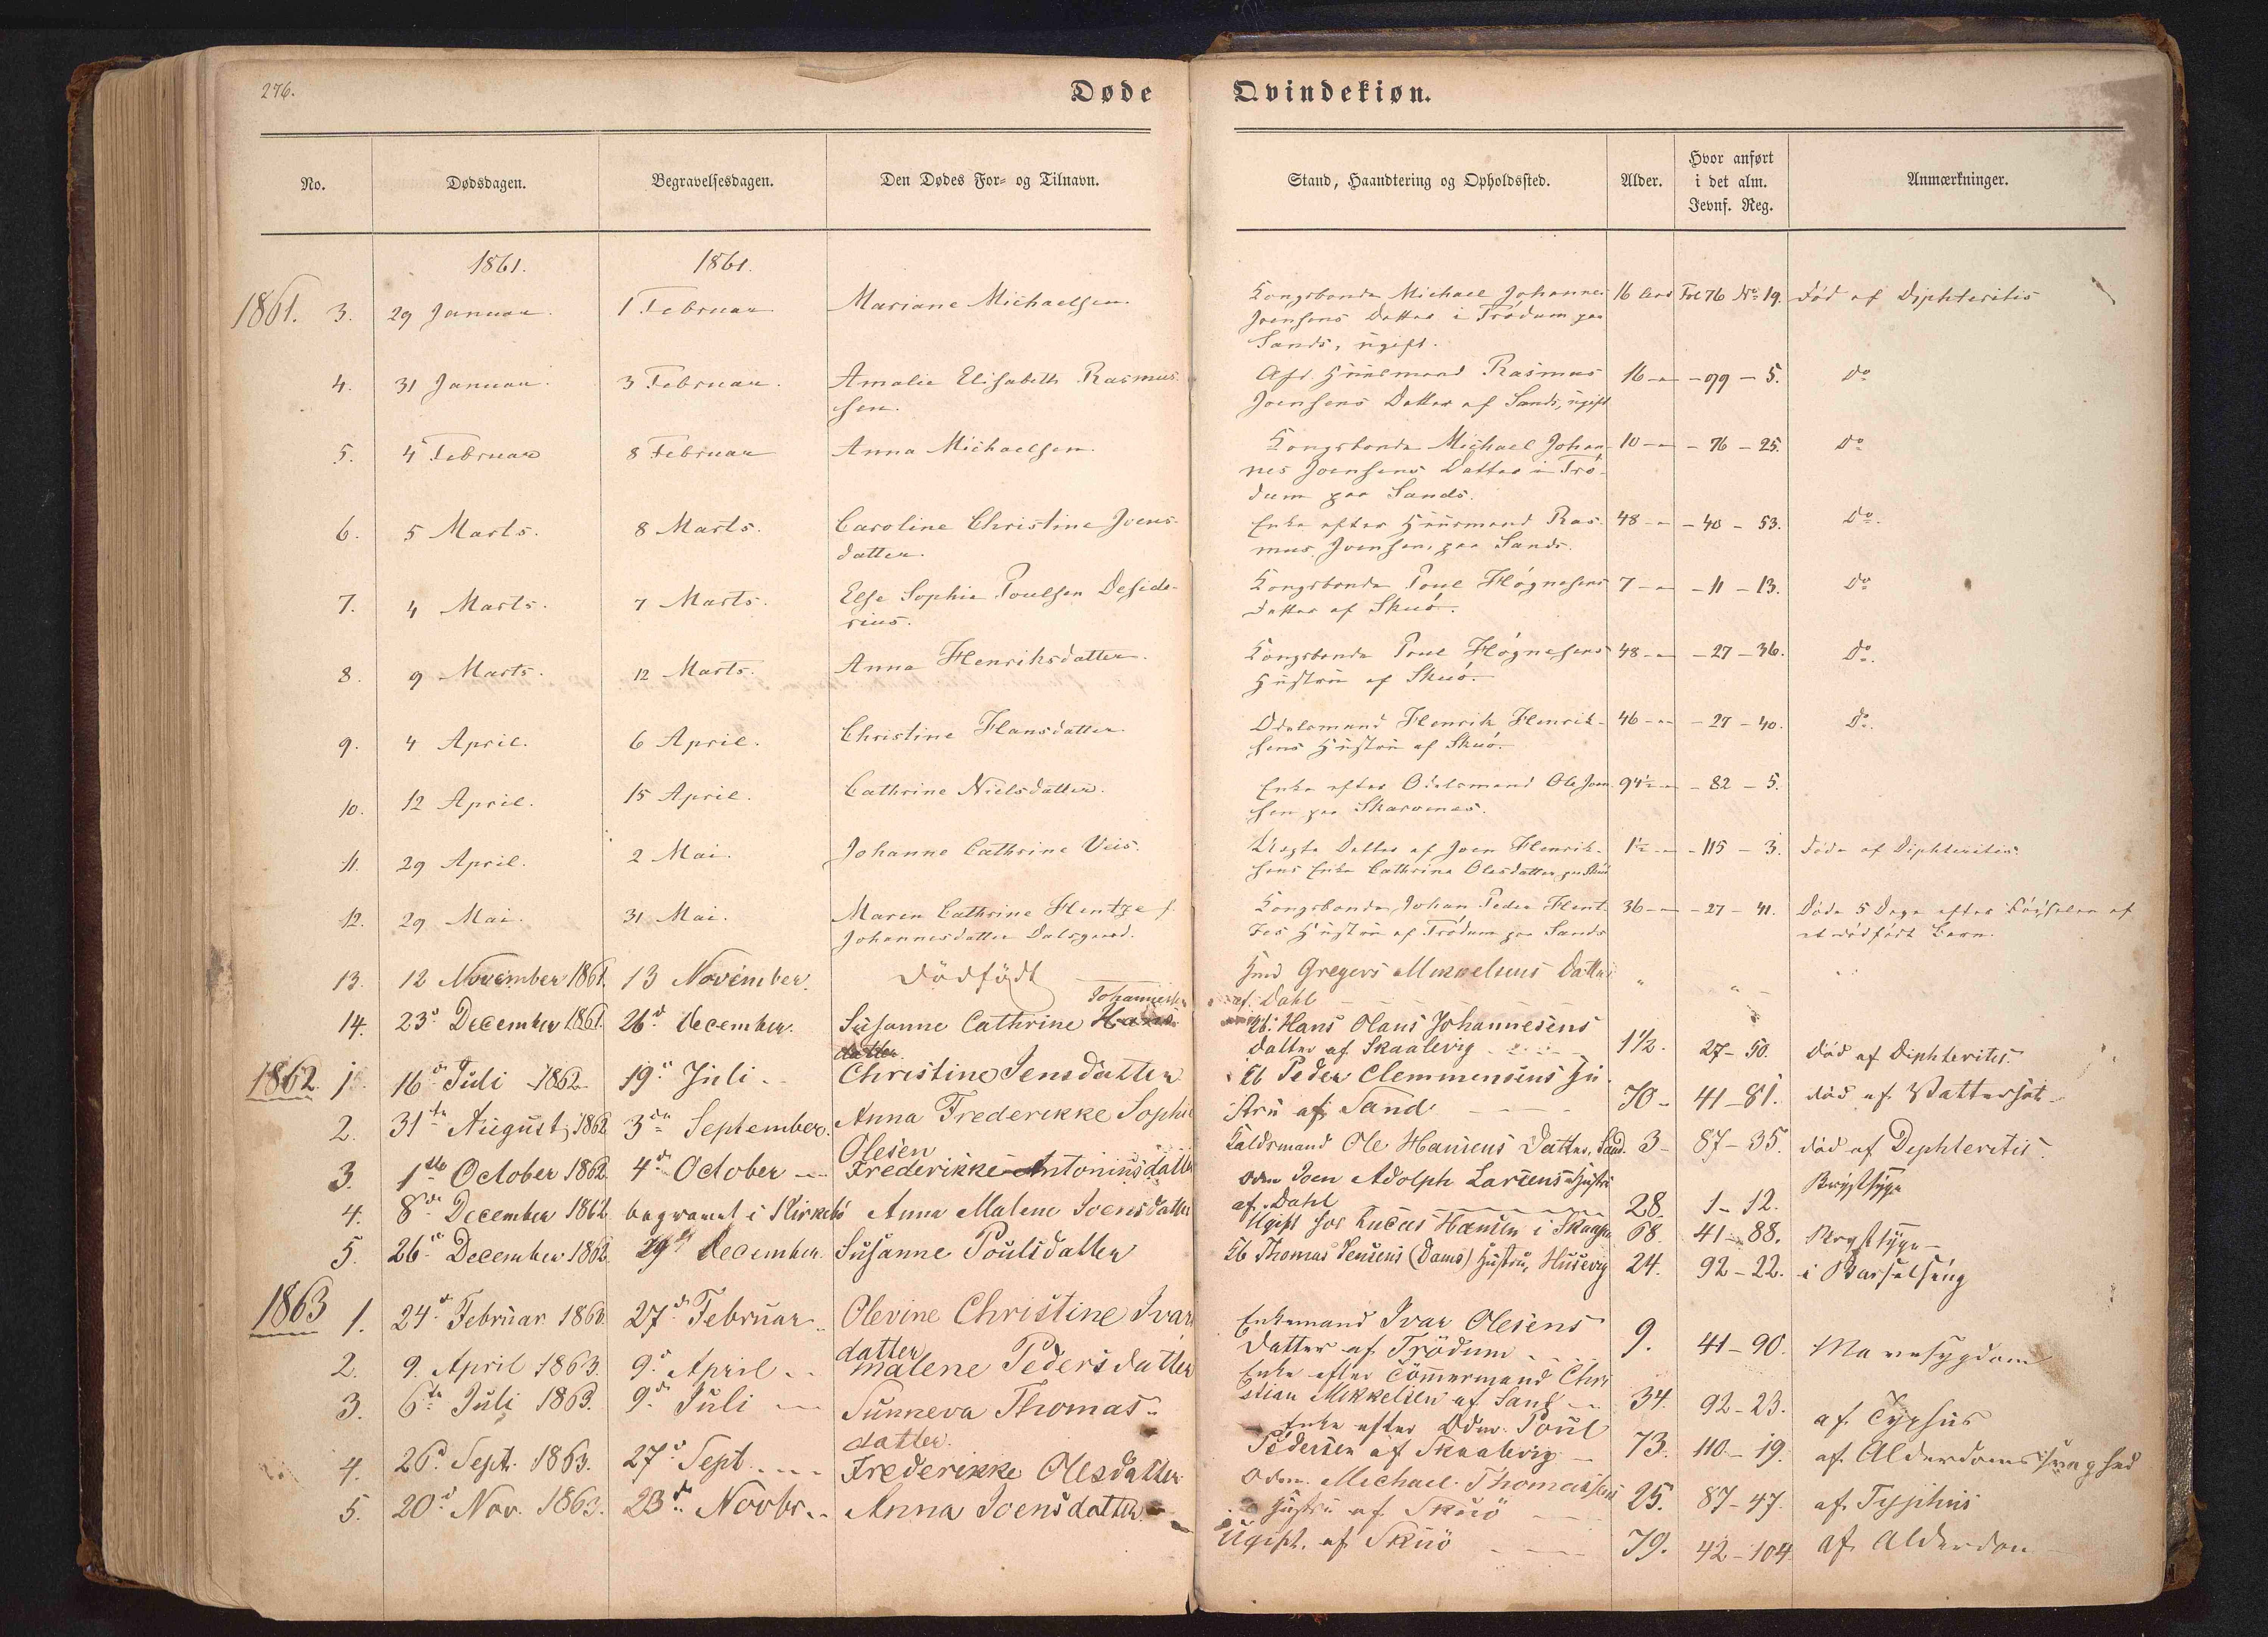 276.
Døde
Qvindekiøn.
No.
Dødsdagen.
Begravelsesdagen.
Den Dødes For- og Tilnavn.
Stand, Haandtering og Opholdssted.
Alder.
Hvor anført
i det alm.
Jevnf. Reg.
Anmærkninger.
1861.
1861.
1861. 3. 29 Januar. 1 Februar Mariane Michaelsen. Kongsbonde Michael Johannes 16 Aar Fol 76 No 19. død af Diphteritis
Joensens Datter i Trödum paa
Sandö, ugift.
4. 31 Januar. 3 Februar. Amalie Elisabeth Rasmus- Afd. Huusmand Rasmus 16 - - 99 - 5. Do
sen. Joensens Datter af Sandö, ugift
5. 4 Februar 8 Februar Anna Michaelsen. Kongsbonde Michael Johan- 10 - - 76 - 25. Do
nes Joensens Datter i Trö-
dum paa Sandö.
6. 5 Marts. 8 Marts. Caroline Christine Joens- Enke efter Huusmand Ras- 48 - - 40 - 53. Do.
datter. mus Joensen, paa Sandö.
7. 4 Marts. 7 Marts. Else Sophie Poulsen Deside- Kongsbonde Poul Högnesens 7 - - 11 - 13. Do
rius. Datter af Skuö.
8. 9 Marts. 12 Marts. Anna Henriksdatter. Kongsbonde Poul Högnesens 48 - - 27 - 36. Do.
Hustru af Skuö.
9. 4 April. 6 April. Christine Hansdatter. Odelsmand Henrik Henrik- 46 - - 27 - 40. Do.
sens Hustru af Skuö.
10. 12 April. 15 April. Cathrine Nielsdatter. Enke efter Odelsmand Ole Joen- 94½ - - 82 - 5.
sen paa Skarvenæs.
11. 29 April. 2 Mai. Johanne Cathrine Veis. Uægte Datter af Joen Henrik- 1½ - - 115 - 3. Døde af Diphteritis.
sens Enke Cathrine Olesdatter paa Skuö
12. 29 Mai. 31 Mai. Maren Cathrine Hentze f. Kongsbonde, Johan Peder Hent- 36 - - 27 - 41. Døde 5 Dage efter Födselen af
Johannesdatter Dalsgaard. zes Hustru af Trödum paa Sandö et dödfödt Barn.
13. 12 November 1861. 13 November. Dödfödt Hmd Gregers Mikkelsens Datter " "
af Dahl
14. 23d December 1861. 26d December. Susanne Cathrine Hans Johannes Kb. Hans Olaus Johannesens
datter. datter af Skaalevig 1½. 27 - 50. död af Diphteritis
1862 1. 16d Juli 1862 19d Juli Christine Jensdatter Kb Peder Clemmensens Hu-
stru af Sand 70 - 41 - 81. död af Vattersot
2. 31te August 1862 3de September. Anna Frederikke Sophie
Olesen Ole Hansens Datter, Sand. 3 - 87 - 35. död af Dephteritis.
3. 1ste October 1862. 4d October Frederikke Antoniusdatter Odm Joen Adolph Larsens Hustru
af Dahl 28. 1 - 12. Brystsyge
4. 8de December 1862 begravet i Kirkebö Anne Malene Joensdatter Ugift hos Lucas Hansen i Skaapen 68. 41 - 88. Brystsyge
5. 26d December 1862. 29d December. Susanne Poulsdatter Kb Thomas Jensens (Dams) Hustru, Husevig 24. 92 - 22. i Barselseng
1863 1. 24d Februar 1863. 27d Februar Olevine Christine Ivars
datter Enkemand Ivar Olesens
Datter af Trödum 9. 41 - 90. Mavesygdom
2. 9. April 1863. 9d April Malene Pedersdatter Enke efter Tömmermand Chri-
stian Mikkelsen af Sand 34. 92 - 23. af Typhus
3. 6te Juli 1863. 9d Juli Sunneva Thomas-
datter. Enke efter Odm. Poul
Pedersen af Skaalevig 73. 110 - 19. af Alderdomssvaghed
4. 26d Sept. 1863. 27d Sept. Frederikke Olesdatter Odm. Michael Thomassens 25. 87 - 47. af Typhus
Hustru af Skuö
5. 20d Nov. 1863. 23d Novbr. Anna Joensdatter Ugift. af Skuö 79. 42 - 104 af Alderdom